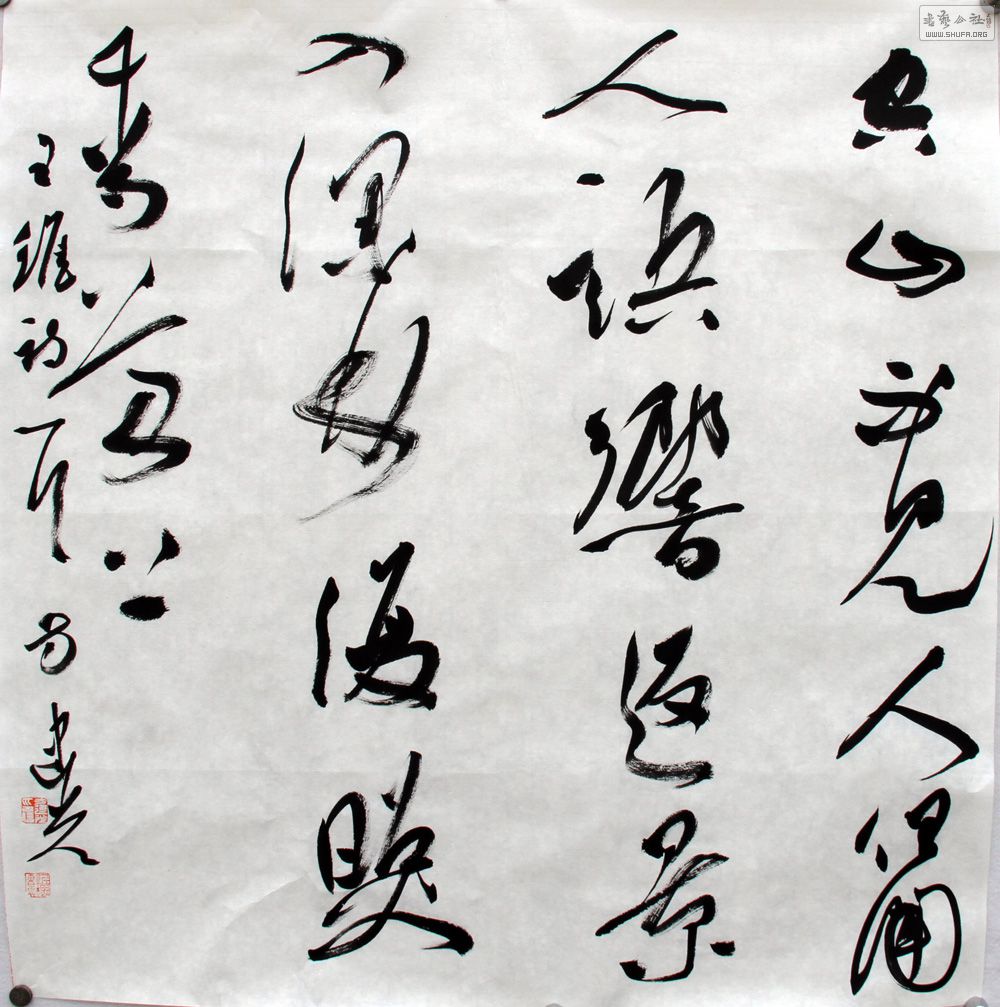 書藝公社
WWW.SHUFA.ORG
空山不見人但聞
人語響返景
入深林復映
青苔上
王維詩 建